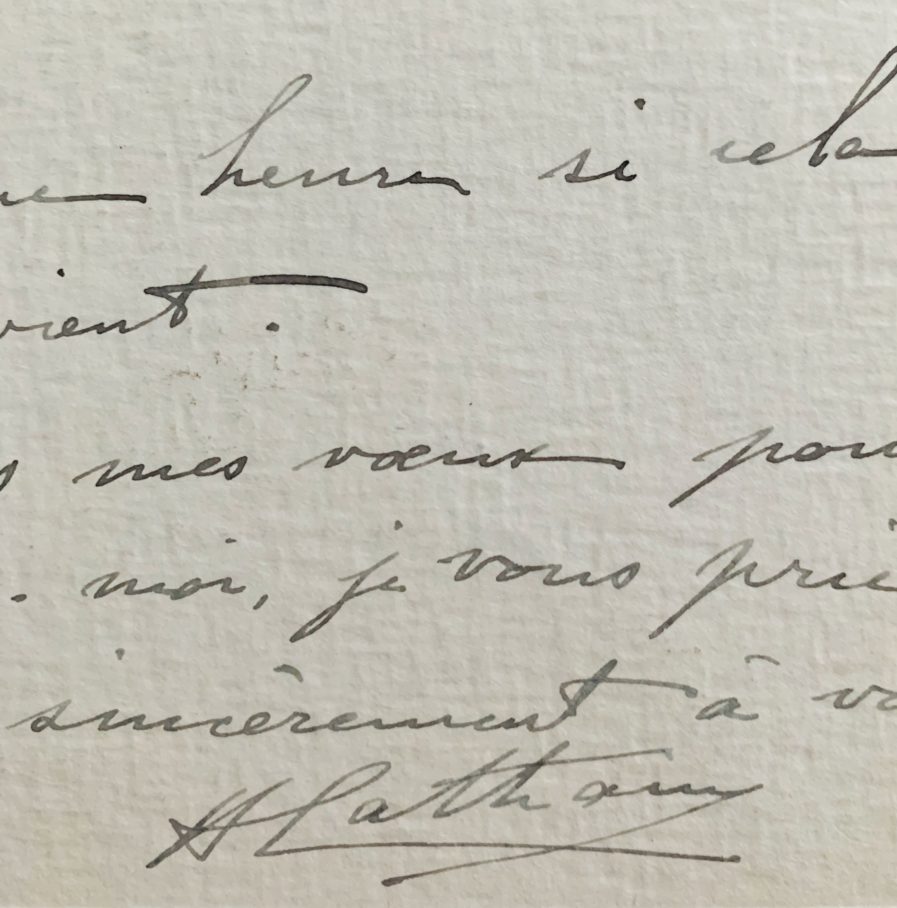 ue heure si cela
vient.
s mes vœux pour
- moi, je vous prie
sincèrement à vo
H Latham